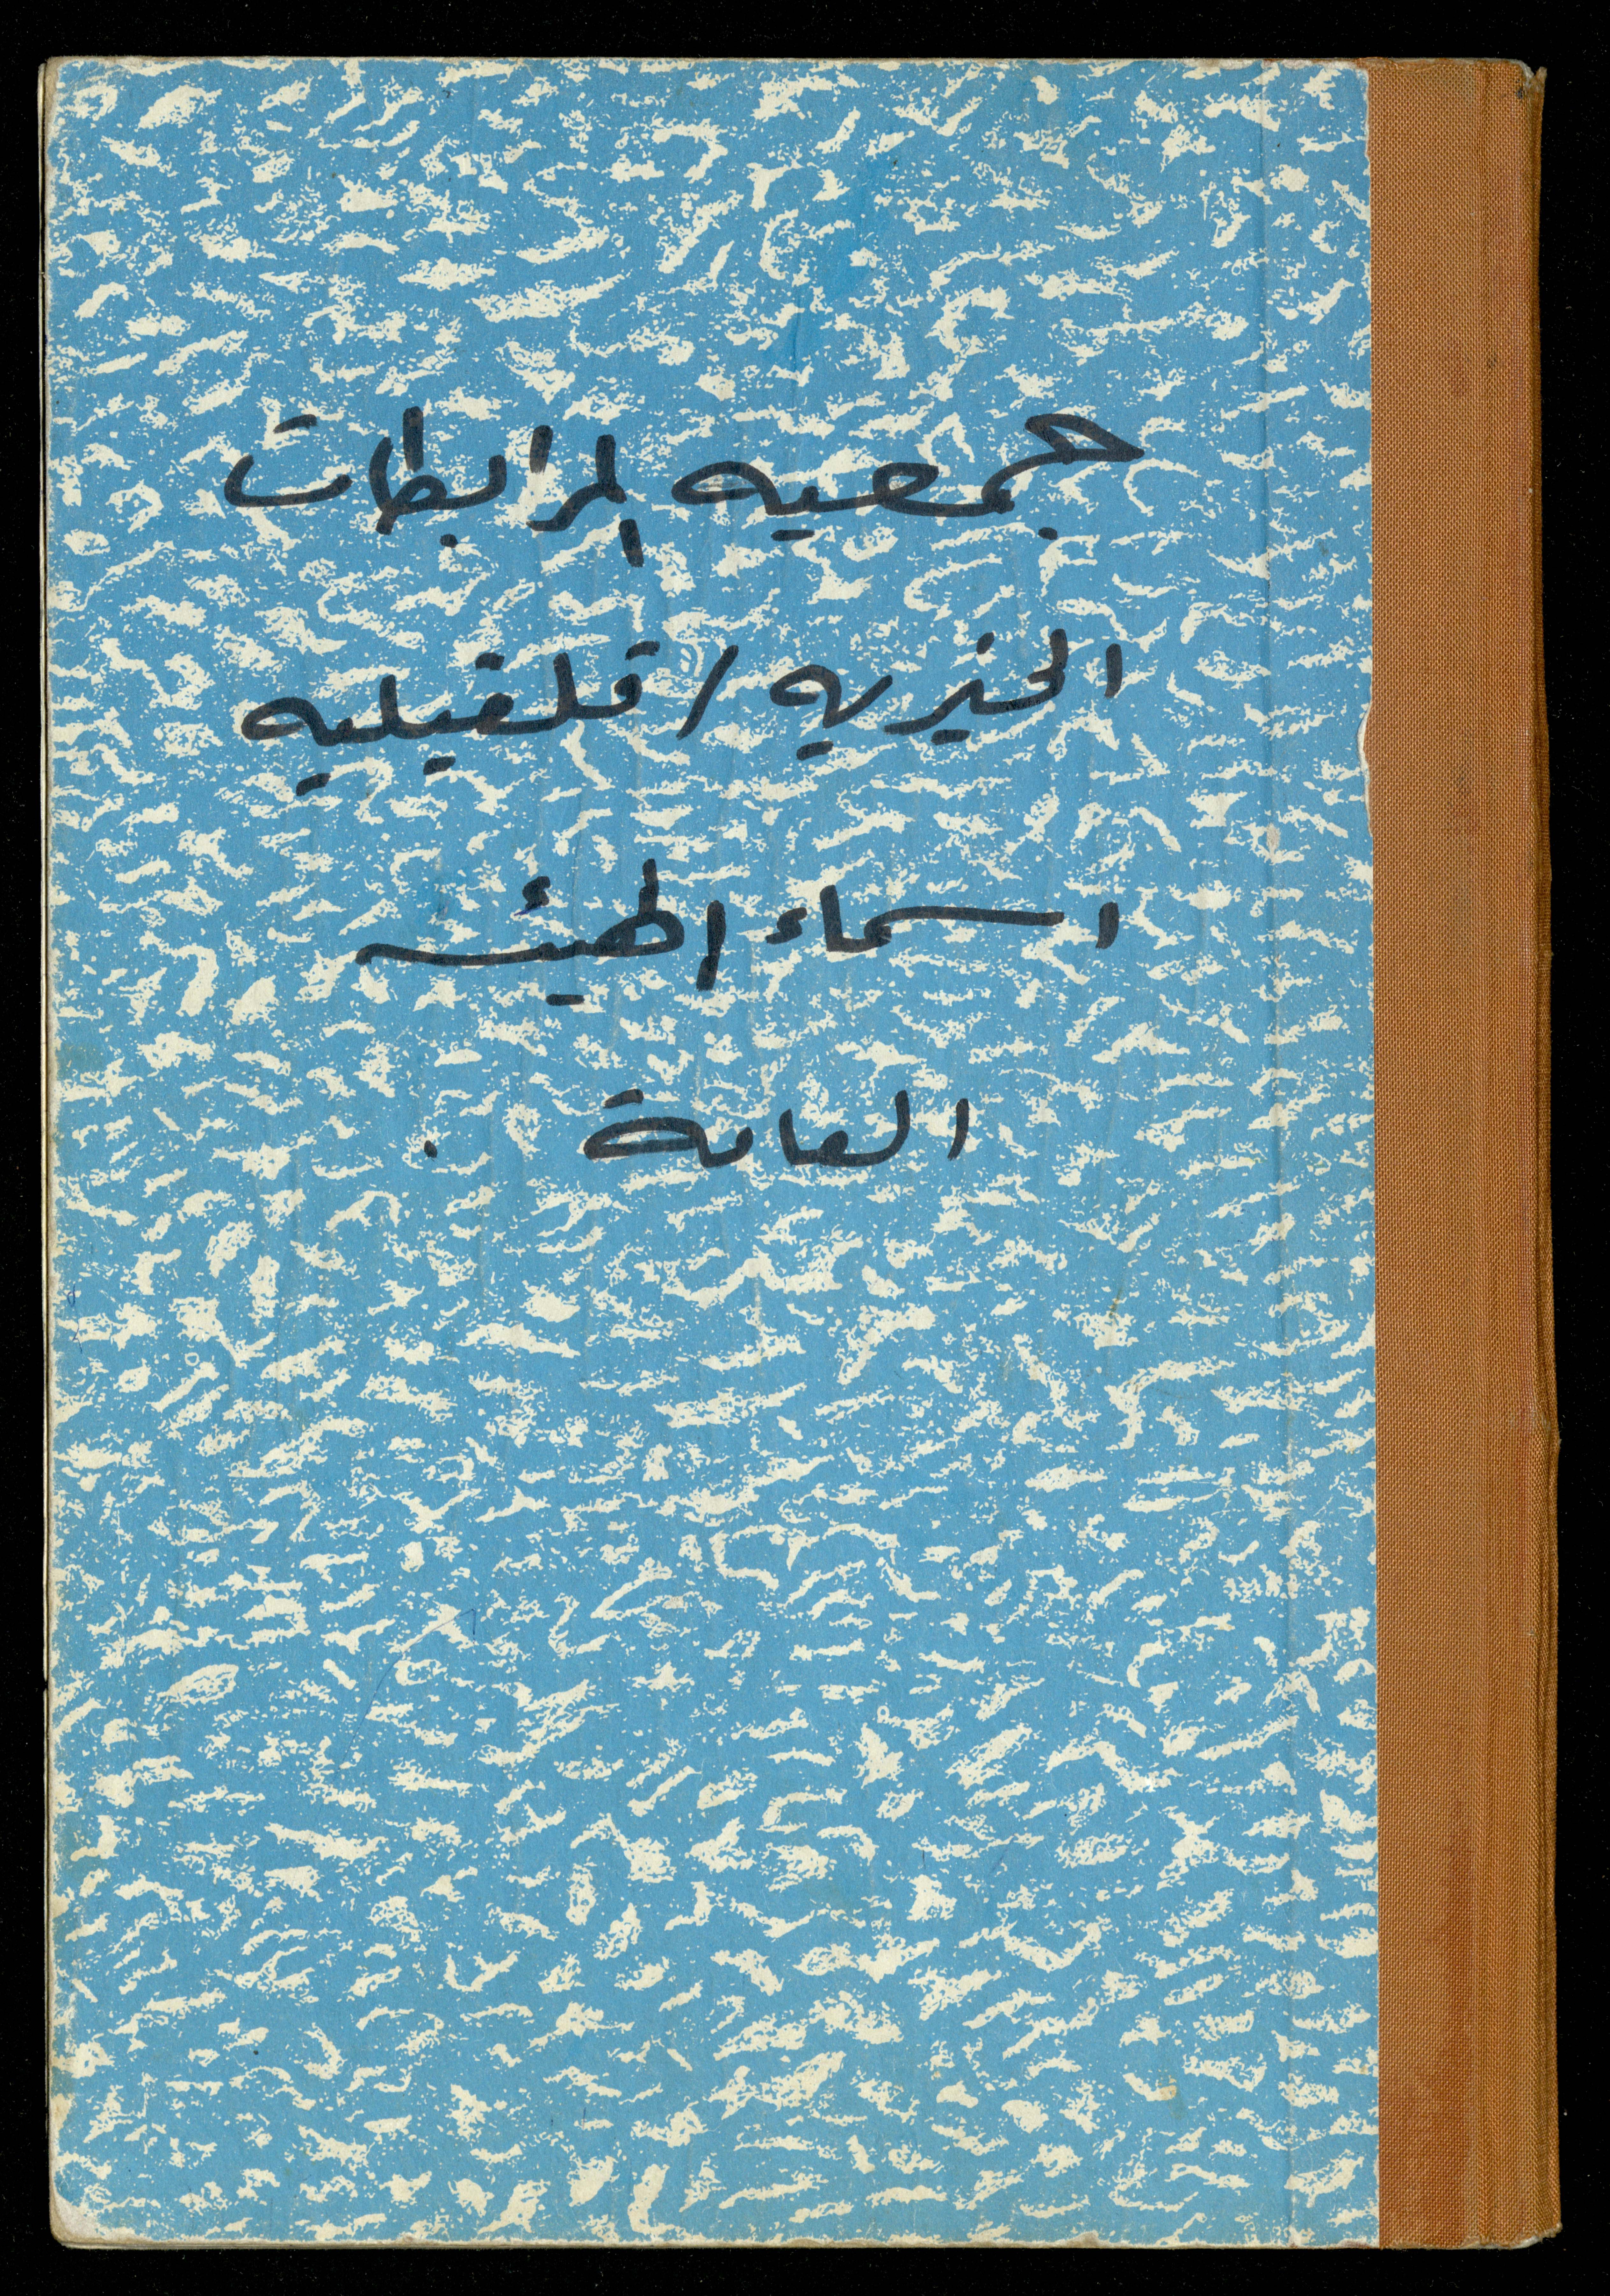 جمعيه المرابطات
الخيريه / قلقيليه
اسماء الهيئه
العامة .